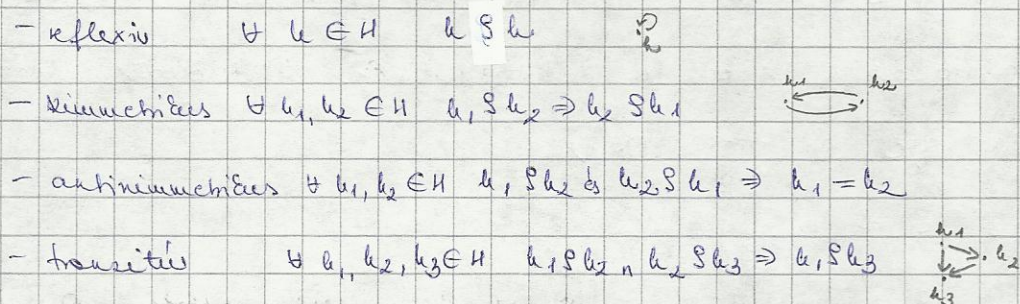 - reflexiv ∀ h ∈ H h ρ h h
- szimmetrikus ∀ h₁, h₂ ∈ H h₁ ρ h₂ ⇒ h₂ ρ h₁ h₁ h₂
- antiszimmetrikus ∀ h₁, h₂ ∈ H h₁ ρ h₂ és h₂ ρ h₁ ⇒ h₁ = h₂
- tranzitív ∀ h₁, h₂, h₃ ∈ H h₁ ρ h₂ ∧ h₂ ρ h₃ ⇒ h₁ ρ h₃ h₁ h₂ h₃